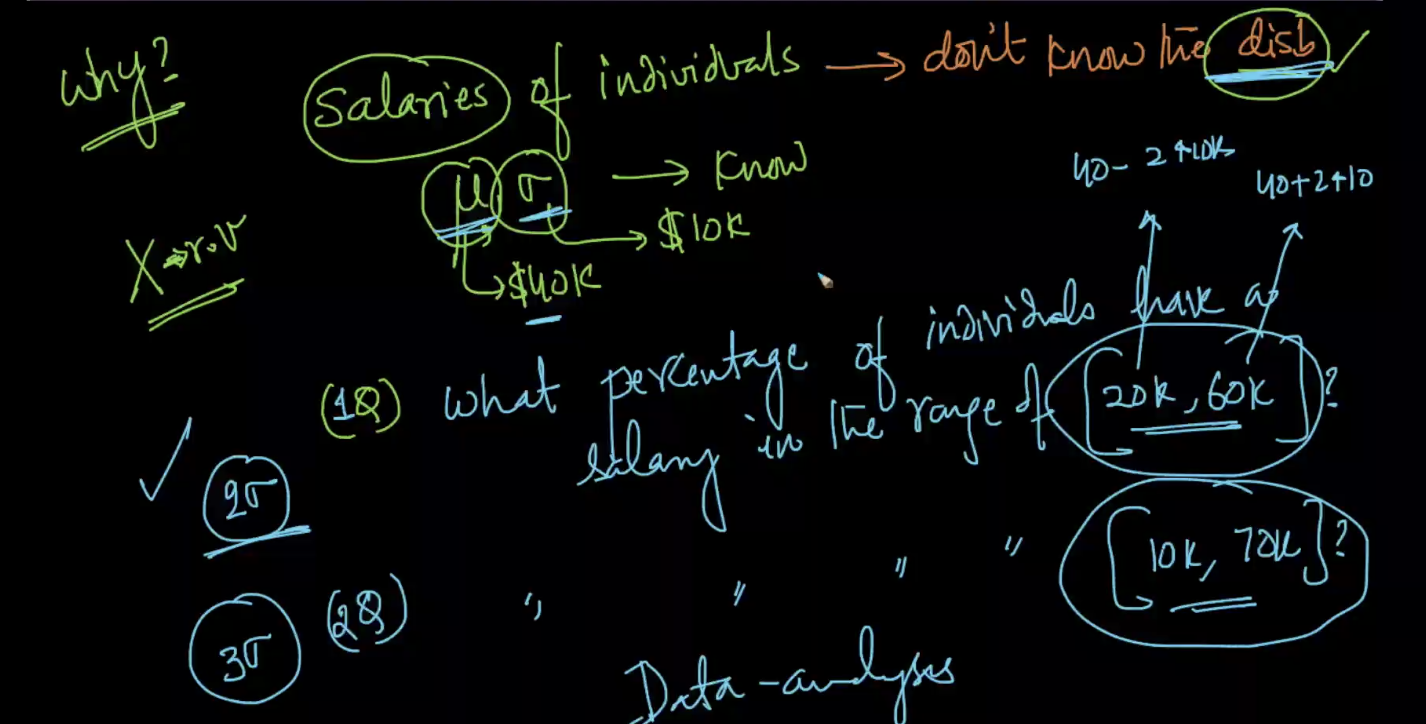 Why?
Salaries of individuals → don't know the dist ✓
μ σ → Know
40-2*10K
40+2*10
X → r.v
$10K
$40K
(1Q) What percentage of individuals have a
salary in the range of [20K, 60K]?
2σ
" " " " [10K, 70K]?
3σ (2Q)
Data-analyses